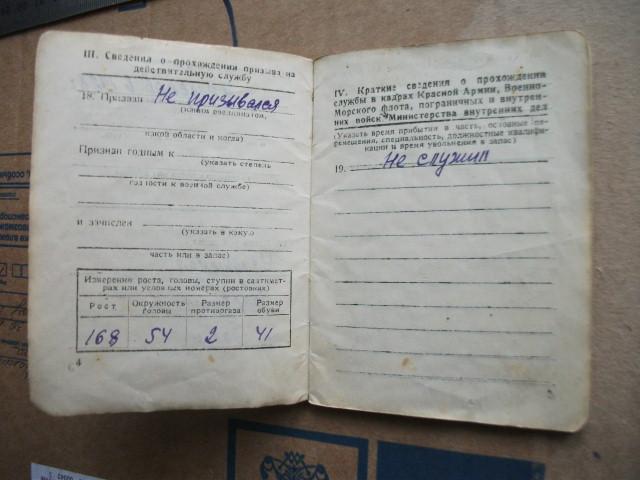 III. Сведения о прохождении призыва на
действительную службу
18. Призван Не призывался
(каким военкоматом,
какой области и когда)
Признан годным к
(указать степень
годности к военной службе)
и зачислен
(указать в какую
часть или в запас)
Измерения роста, головы, ступни в сантимет-
рах или условных номерах (ростовках)
Рост Окружность головы Размер противогаза Размер обуви
168 54 2 41
4
IV. Краткие сведения о прохождении
службы в кадрах Красной Армии, Военно-
Морского флота, пограничных и внутрен-
них войск Министерства внутренних дел
(Указать время прибытия в часть, основные пе-
ремещения, специальность, должностные квалифи-
кации и время увольнения в запас)
19. Не служил